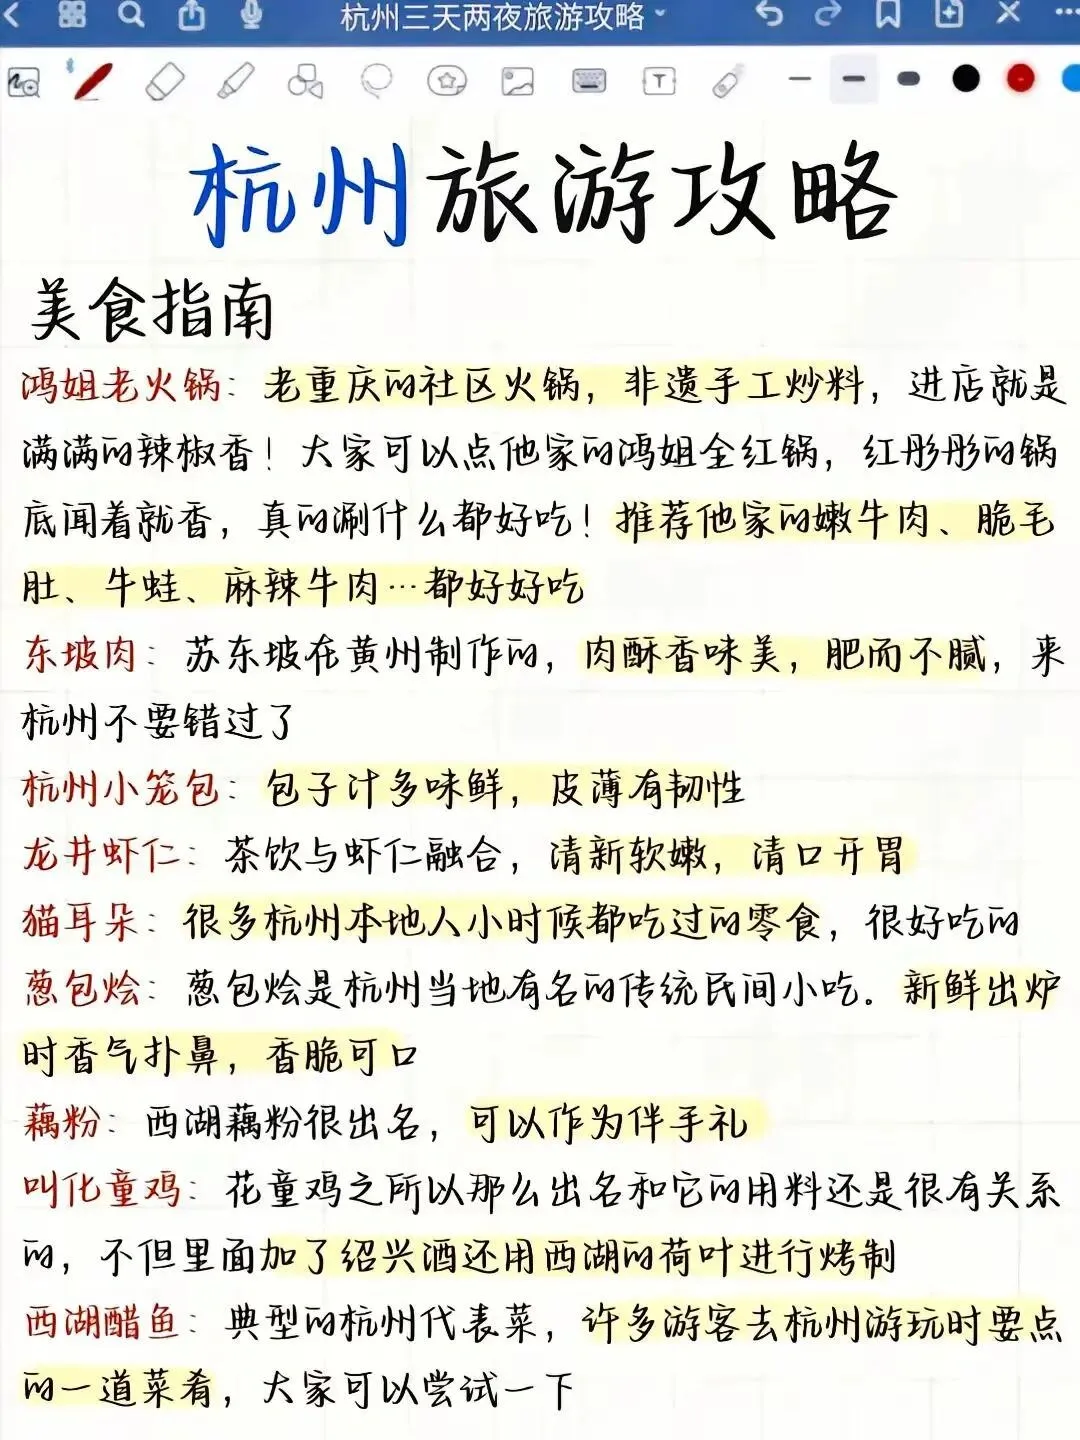 杭州三天两夜旅游攻略
T
杭州旅游攻略
美食指南
鸿姐老火锅：老重庆的社区火锅，非遗手工炒料，进店就是
满满的辣椒香！大家可以点他家的鸿姐全红锅，红彤彤的锅
底闻着就香，真的涮什么都好吃！推荐他家的嫩牛肉、脆毛
肚、牛蛙、麻辣牛肉…都好好吃
东坡肉：苏东坡在黄州制作的，肉酥香味美，肥而不腻，来
杭州不要错过了
杭州小笼包：包子汁多味鲜，皮薄有韧性
龙井虾仁：茶饮与虾仁融合，清新软嫩，清口开胃
猫耳朵：很多杭州本地人小时候都吃过的零食，很好吃的
葱包烩：葱包烩是杭州当地有名的传统民间小吃。新鲜出炉
时香气扑鼻，香脆可口
藕粉：西湖藕粉很出名，可以作为伴手礼
叫化童鸡：花童鸡之所以那么出名和它的用料还是很有关系
的，不但里面加了绍兴酒还用西湖的荷叶进行烤制
西湖醋鱼：典型的杭州代表菜，许多游客去杭州游玩时要点
的一道菜肴，大家可以尝试一下